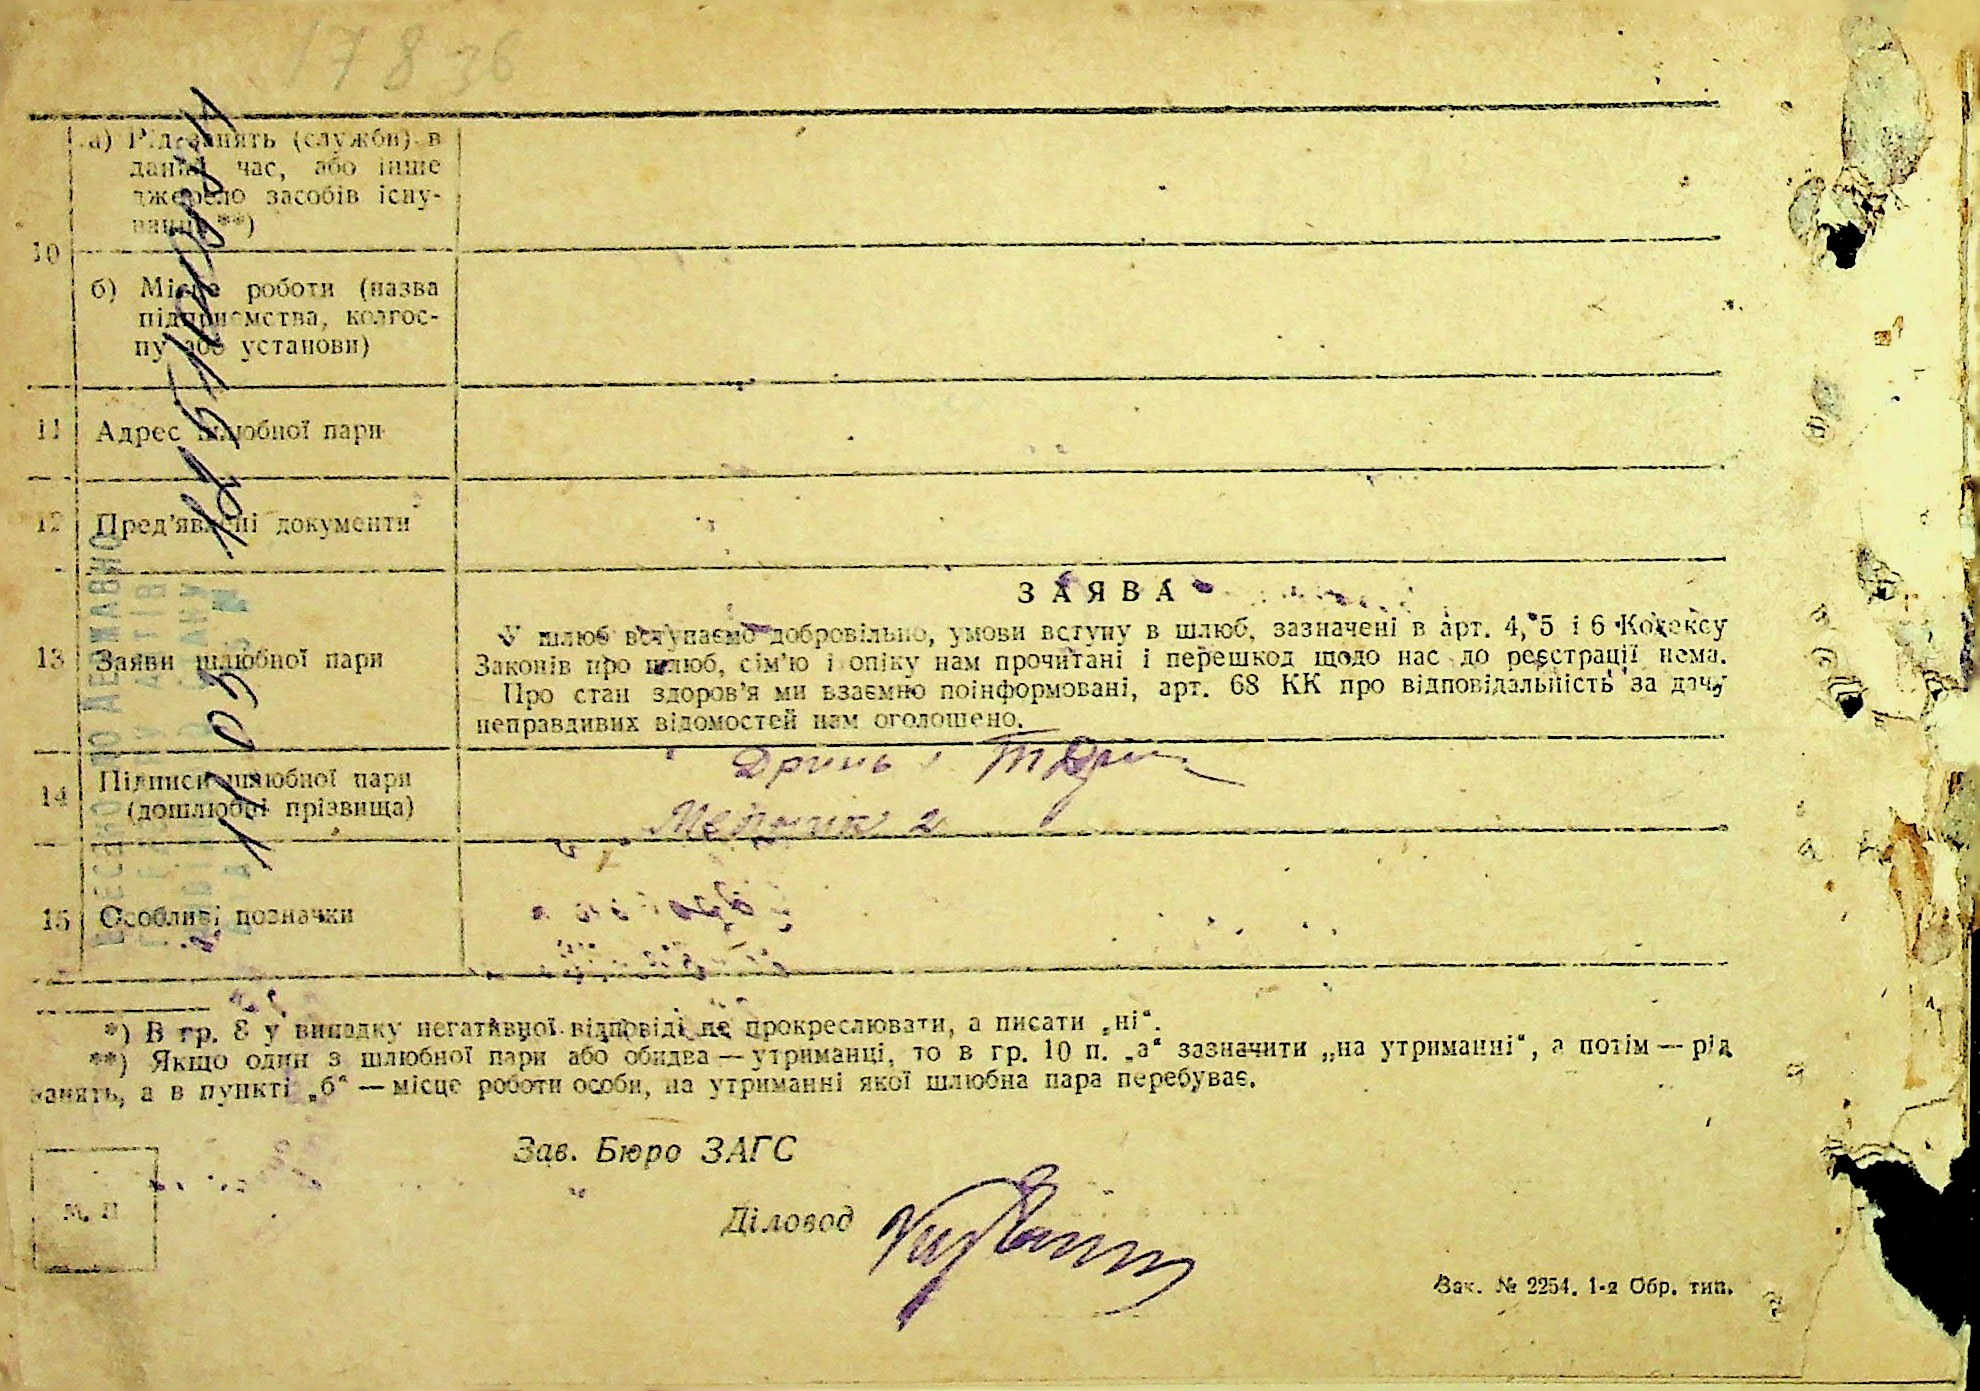 17836
а) Рід занять (служби) в
даний час, або інше
джерело засобів існу-
вання **)
10
б) Місце роботи (назва
підприємства, колгос-
пу або установи)
11 Адрес шлюбної пари
12 Пред'явлені документи
ЗАЯВА
У шлюб вступаємо добровільно, умови вступу в шлюб, зазначені в арт. 4, 5 і 6 Кодексу
13 Заяви шлюбної пари
Законів про шлюб, сім'ю і опіку нам прочитані і перешкод щодо нас до реєстрації нема.
Про стан здоров'я ми взаємно поінформовані, арт. 68 КК про відповідальність за дачу
неправдивих відомостей нам оголошено.
14 Підписи шлюбної пари
(дошлюбні прізвища)
Дринь
Мельник
15 Особливі позначки
*) В гр. 8 у випадку негативної відповіді не прокреслювати, а писати „ні“.
**) Якщо один з шлюбної пари або обидва — утриманці, то в гр. 10 п. „а“ зазначити „на утриманні“, а потім — рід
занять, а в пункті „б“ — місце роботи особи, на утриманні якої шлюбна пара перебуває.
Зав. Бюро ЗАГС
М. П
Діловод
Зак. № 2254. 1-а Обр. тип.